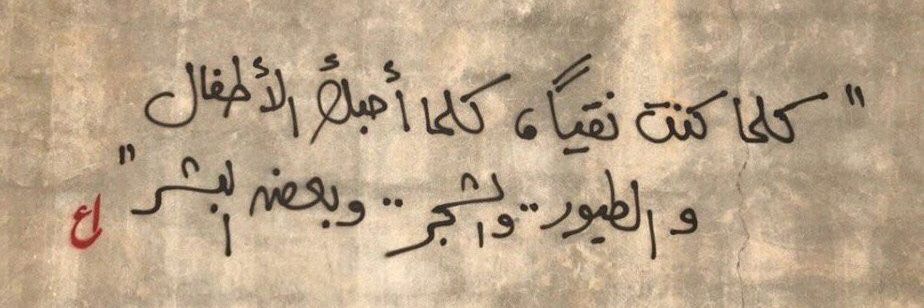 "كلما كنت نقياً، كلما أحبك الأطفال
والطيور.. والشجر.. وبعض البشر"
ع